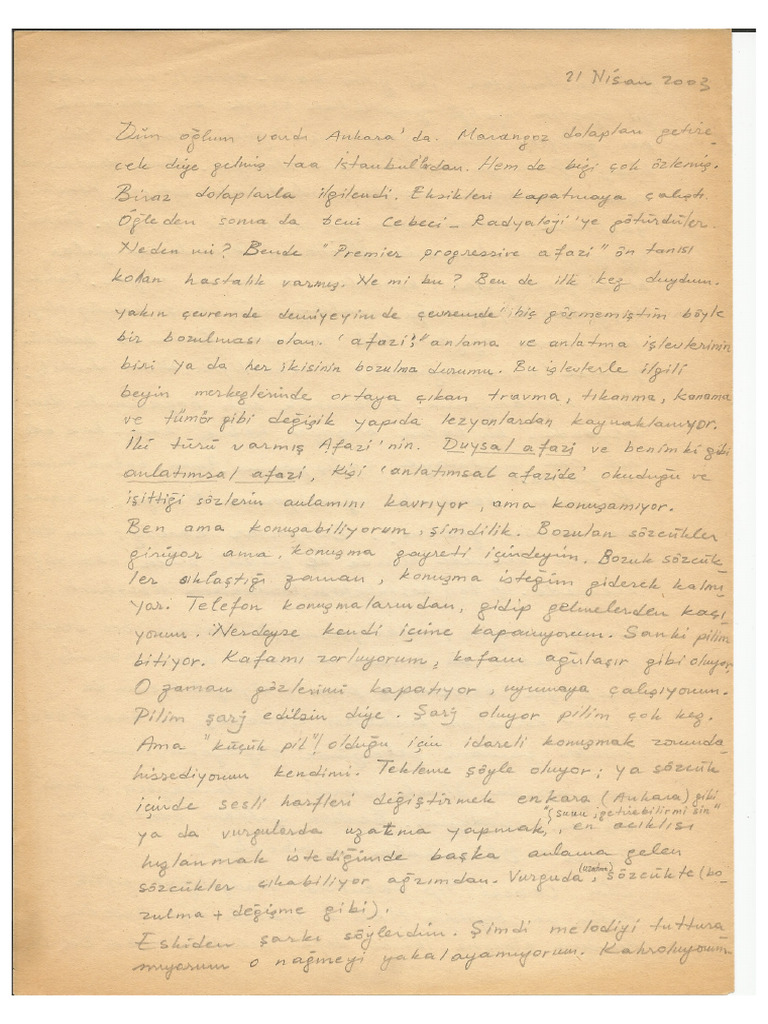 21 Nisan 2003
Dün oğlum vardı Ankara'da. Marangoz dolapları getire-
cek diye gelmiş taa İstanbul'dan. Hem de bizi çok özlemiş.
Biraz dolaplarla ilgilendi. Eksikleri kapatmaya çalıştı.
Öğleden sonra da beni Cebeci - Radyoloji'ye götürdüler.
Neden mi? Bende "Premier progressive afazi" ön tanısı
konan hastalık varmış. Ne mi bu? Ben de ilk kez duydum.
yakın çevremde demiyeyim de çevremde hiç görmemiştim böyle
bir bozulması olan. 'afazi;" anlama ve anlatma işlevlerinin
biri ya da her ikisinin bozulma durumu. Bu işlevlerle ilgili
beyin merkezlerinde ortaya çıkan travma, tıkanma, kanama
ve tümör gibi değişik yapıda lezyonlardan kaynaklanıyor.
İki türü varmış Afazi'nin. Duysal afazi ve benimki gibi
anlatımsal afazi, Kişi 'anlatımsal afazide' okuduğu ve
işittiği sözlerin anlamını kavrıyor, ama konuşamıyor.
Ben ama konuşabiliyorum, şimdilik. Bozulan sözcükler
giriyor ama, konuşma gayreti içindeyim. Bozuk sözcük-
ler sıklaştığı zaman, konuşma isteğim giderek kalmı-
yor. Telefon konuşmalarından, gidip gelmelerden kaçı-
yorum. Nerdeyse kendi içime kapanıyorum. Sanki pilim
bitiyor. Kafamı zorluyorum, kafam ağırlaşır gibi oluyor,
O zaman gözlerimi kapatıyor, uyumaya çalışıyorum.
Pilim şarj edilsin diye. Şarj oluyor pilim çok kez.
Ama "küçük pil"! olduğu için idareli konuşmak zorunda
hissediyorum kendimi. Tekleme şöyle oluyor; ya sözcük
içinde sesli harfleri değiştirmek enkara (Ankara) gibi
ya da vurgularda uzatma yapmak, "(şunu getirebilirmisin" en acıklısı
hızlanmak istediğimde başka anlama gelen
sözcükler çıkabiliyor ağzımdan. Vurguda (uzatma), sözcükte (bo-
zulma + değişme gibi).
Eskiden şarkı söylerdim. Şimdi melodiyi tuttura-
mıyorum o nağmeyi yakalayamıyorum. Kahroluyorum.